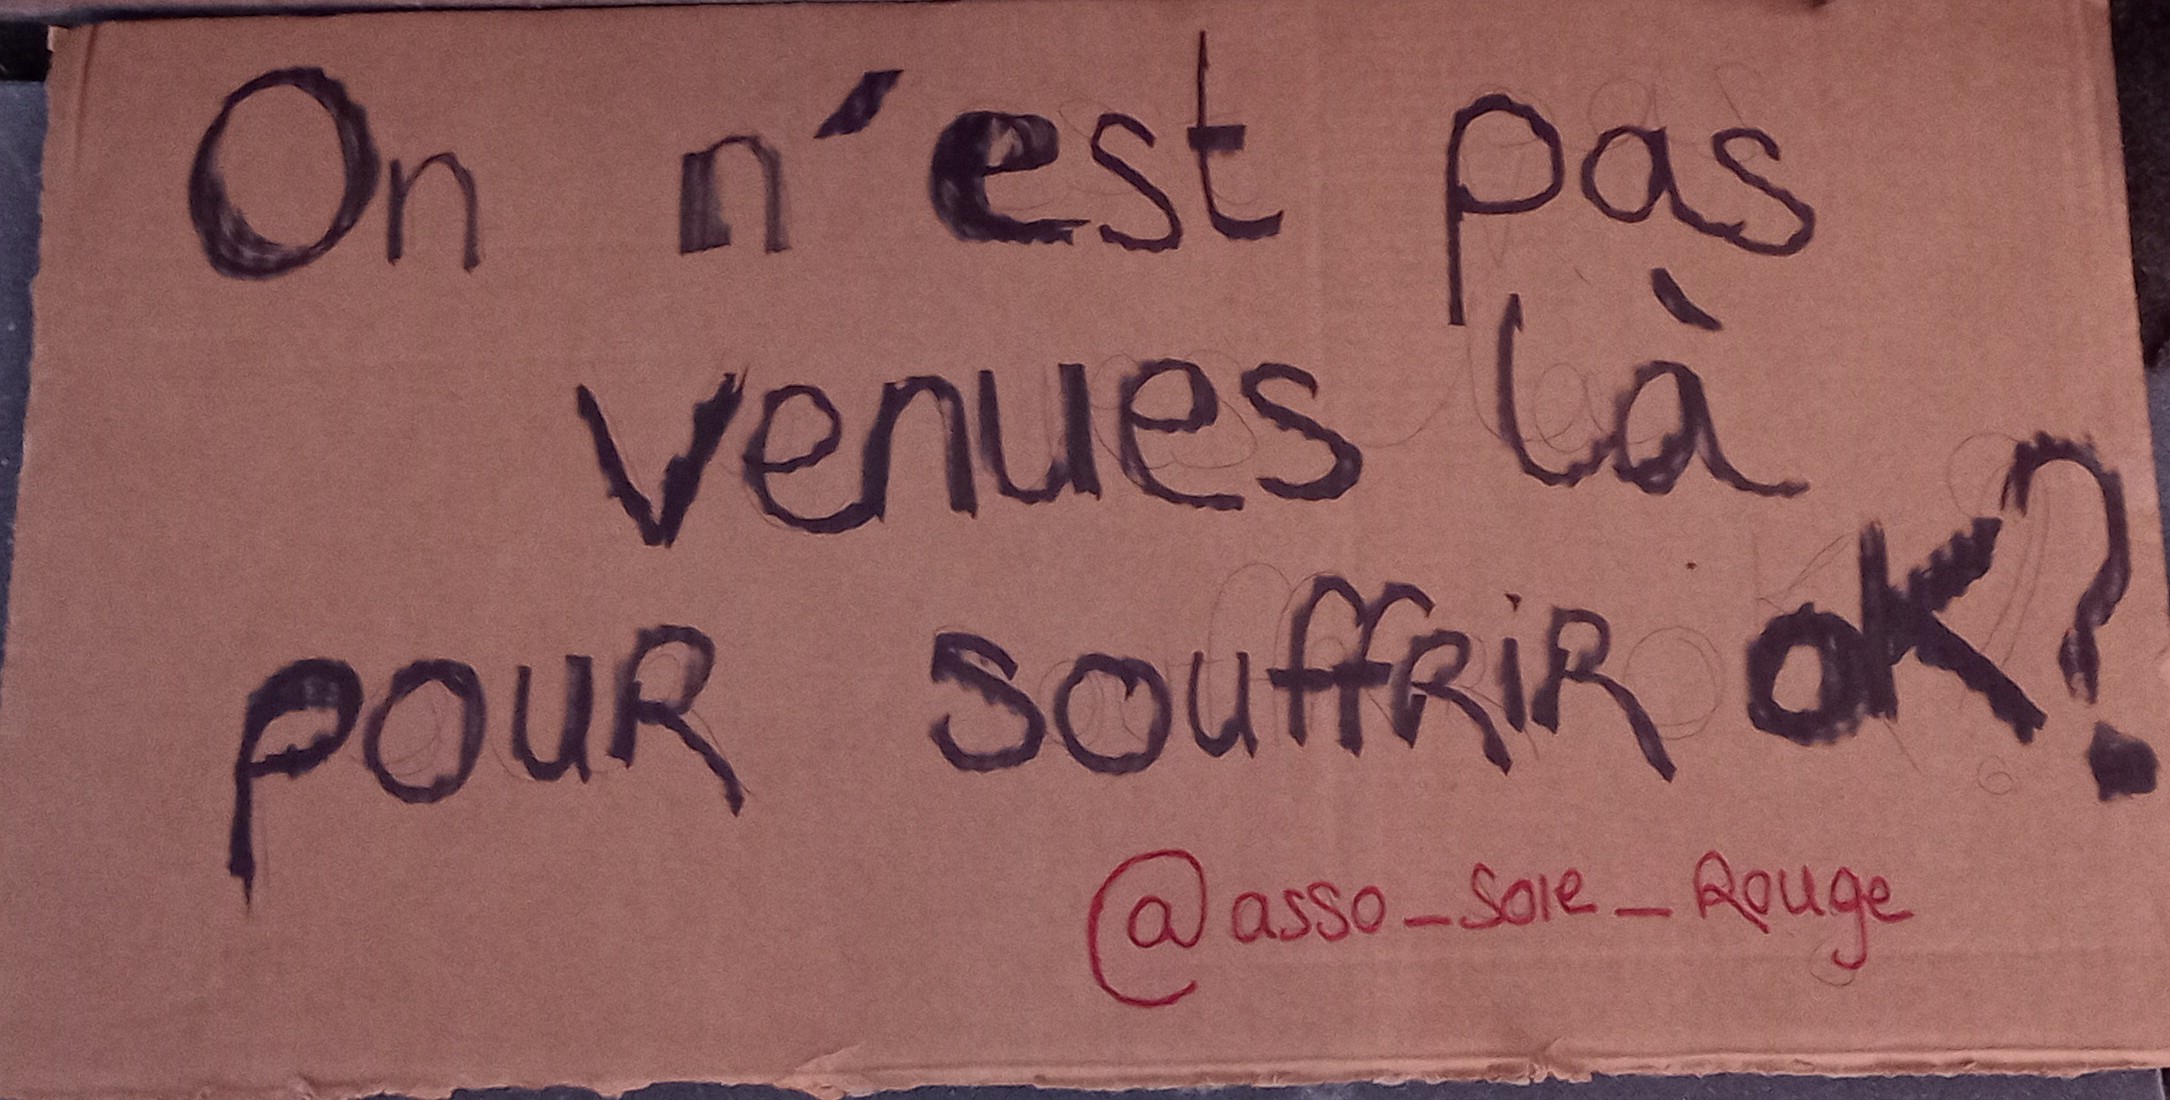 On n'est pas
venues là
pour souffrir ok?
@asso_soie_Rouge